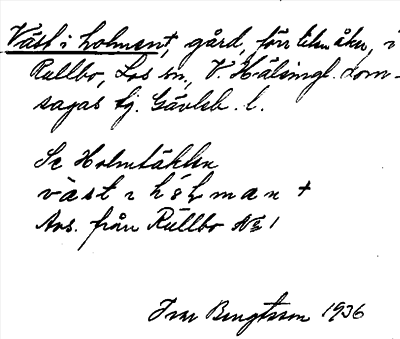 Väst i holment, gård, förr liksom åker, i
Rullbo, Los sn, V. Hälsingl. dom-
sagas tj. Gävleb. l.
Se Holmtäkten
väst i hólman +
Avs. från Rullbo No 1
Ivar Bengtsson 1936